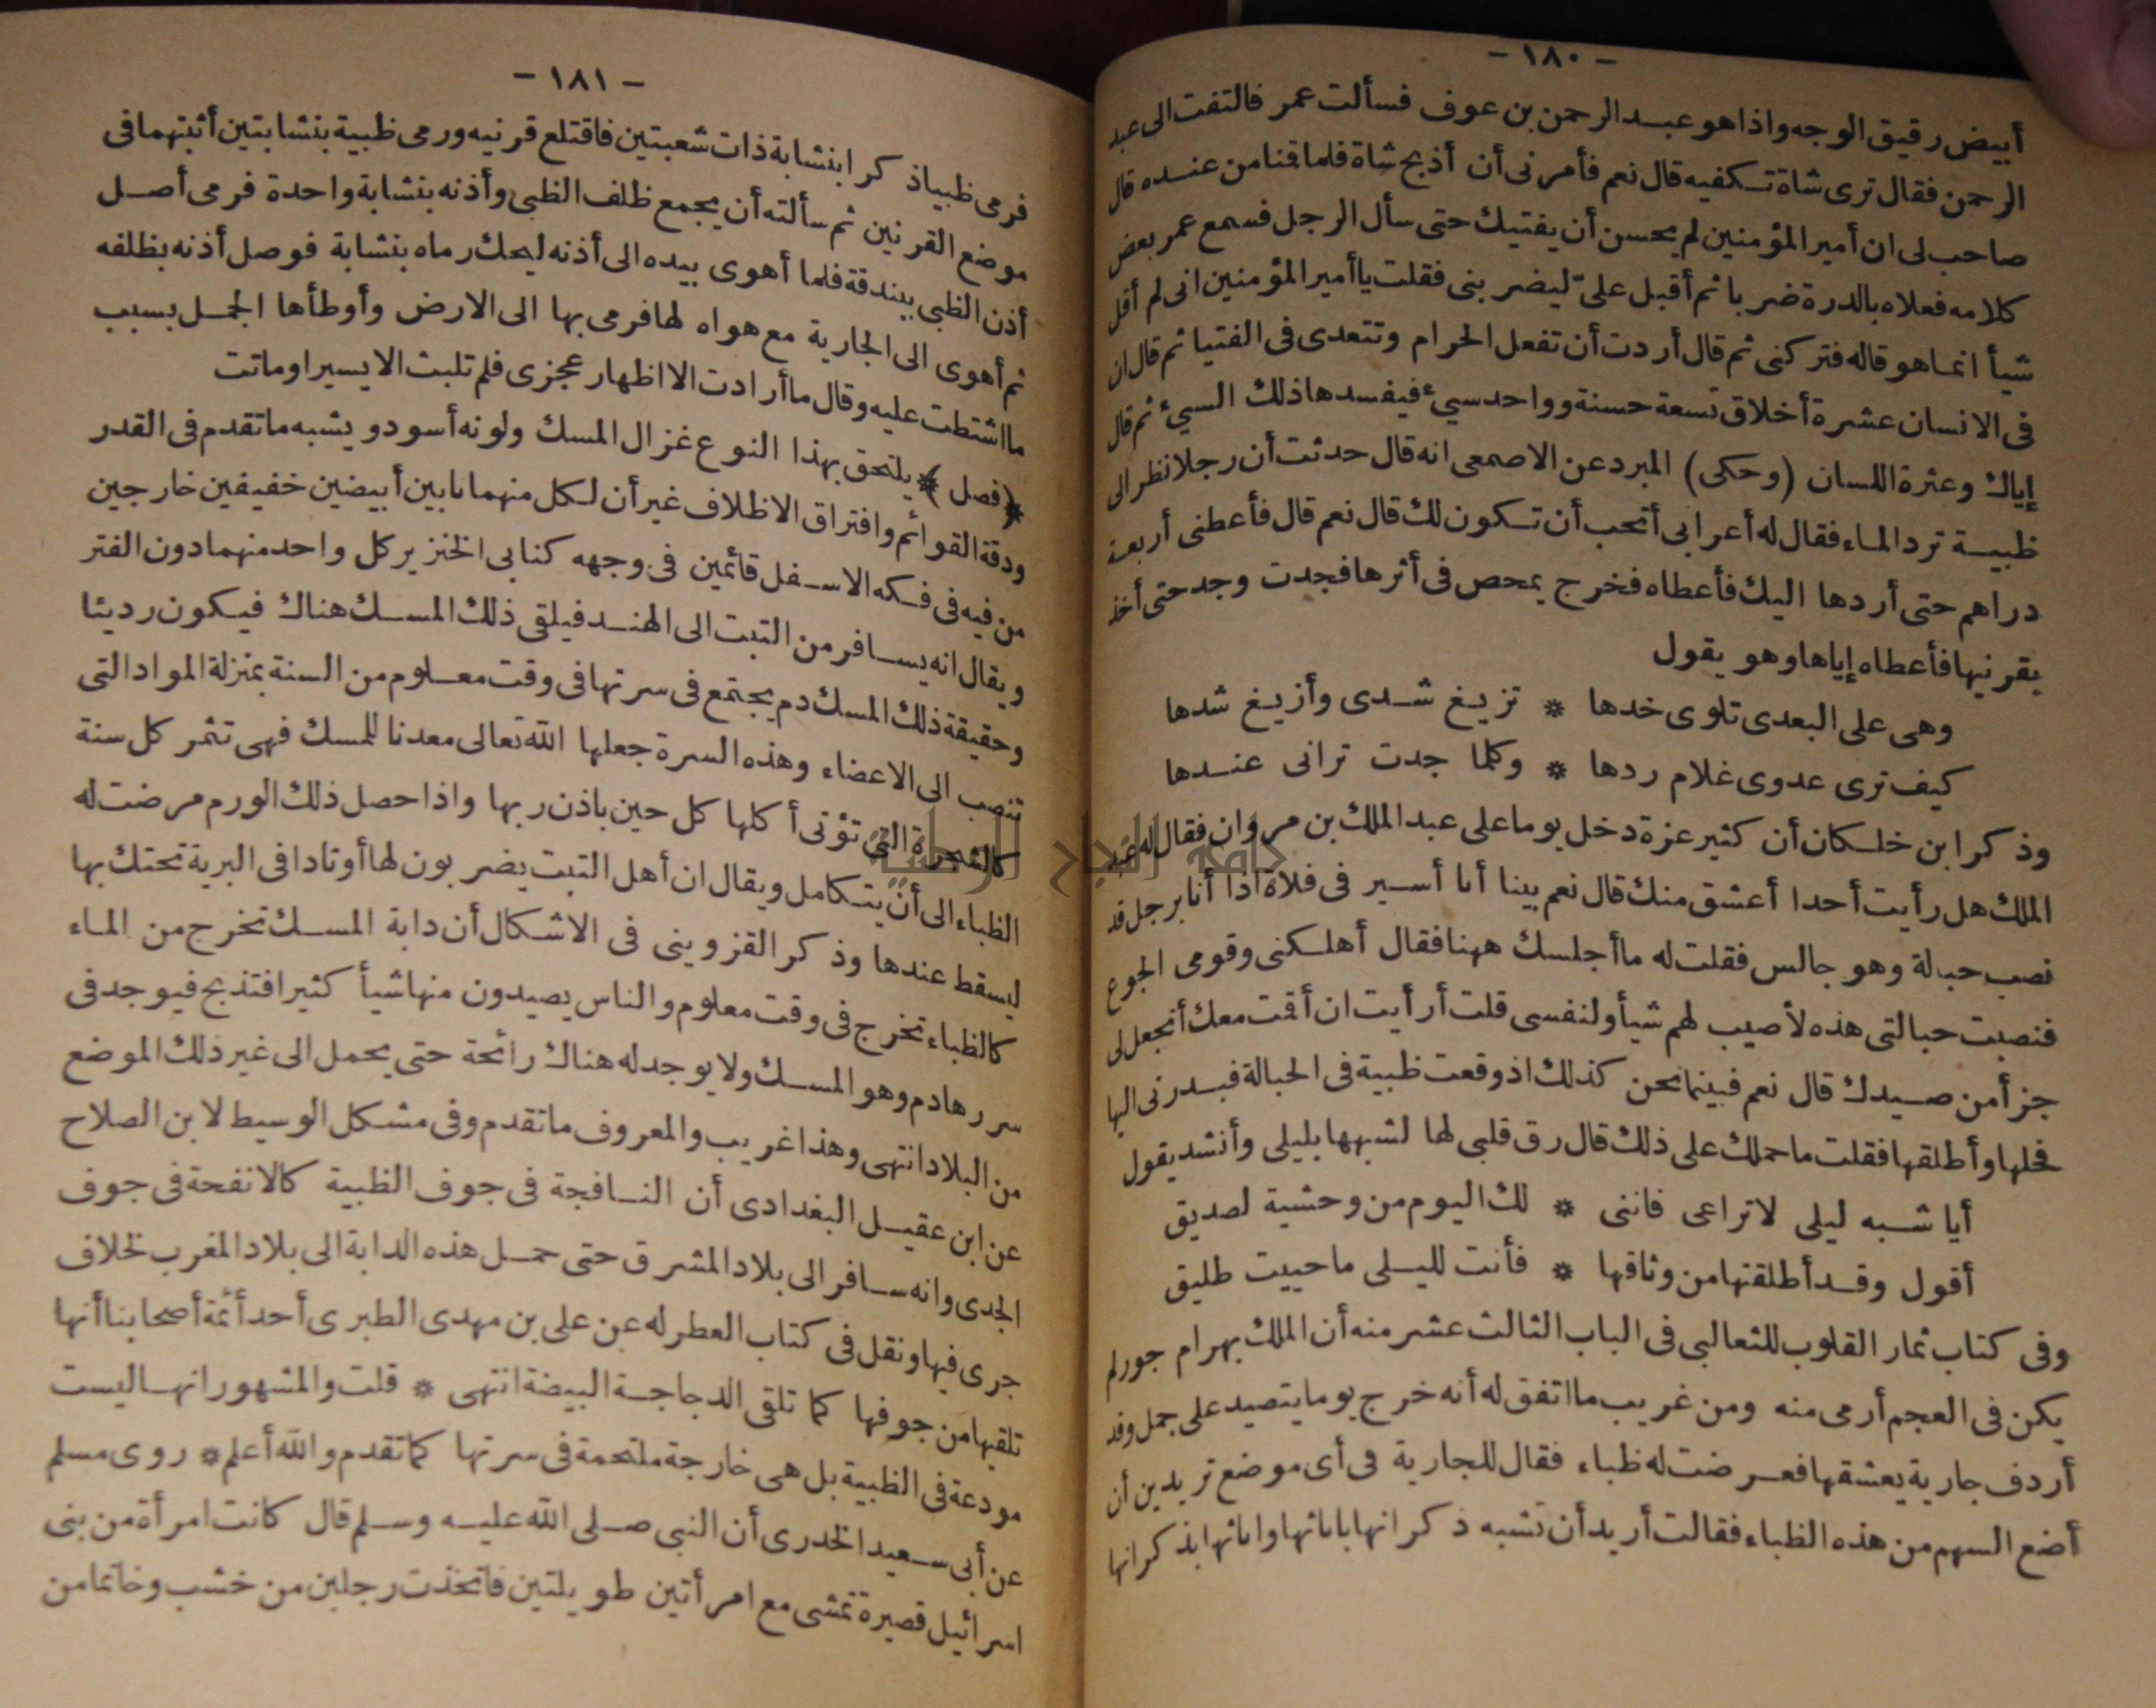 - ١٨٠ -
أبيض رقيق الوجه واذا هو عبد الرحمن بن عوف فسألت عمر فالتفت الى عبد
الرحمن فقال ترى شاة تكفيه قال نعم فأمرنى أن أذبح شاة فلما قمنا من عنده قال
صاحب لى ان أمير المؤمنين لم يحسن أن يفتيك حتى سأل الرجل فسمع عمر بعض
كلامه فعلاه بالدرة ضربا ثم أقبل علىّ ليضربنى فقلت يا أمير المؤمنين انى لم أقل
شيأ انما هو قاله فتركنى ثم قال أردت أن تفعل الحرام وتتعدى فى الفتيا ثم قال ان
فى الانسان عشرة أخلاق تسعة حسنة وواحد سىء فيفسدها ذلك السىء ثم قال
إياك وعثرة اللسان (وحكى) المبرد عن الاصمعى انه قال حدثت أن رجلا نظر الى
ظبية ترد الماء فقال له أعرابى أتحب أن تكون لك قال نعم قال فأعطنى أربعة
دراهم حتى أردها اليك فأعطاه فخرج يمحص فى أثرها فجدت وجد حتى أخذ
بقرنيها فأعطاه إياها وهو يقول
وهى على البعدى تلوى خدها * تزيغ شدى وأزيغ شدها
كيف ترى عدوى غلام ردها * وكلما جدت ترانى عندها
وذكر ابن خلكان أن كثير عزة دخل يوما على عبد الملك بن مروان فقال له عبد
الملك هل رأيت أحدا أعشق منك قال نعم بينا أنا أسير فى فلاة اذا أنا برجل قد
نصب حبالة وهو جالس فقلت له ما أجلسك ههنا فقال أهلكنى وقومى الجوع
فنصبت حبالتى هذه لأصيب لهم شيأ ولنفسى قلت أرأيت ان أقمت معك أتجعل لى
جزأ من صيدك قال نعم فبينما نحن كذلك اذ وقعت ظبية فى الحبالة فبدرنى اليها
فحلها وأطلقها فقلت ما حملك على ذلك قال رق قلبى لها لشبهها بليلى وأنشد يقول
أيا شبه ليلى لا تراعى فاننى * لك اليوم من وحشية لصديق
أقول وقد أطلقتها من وثاقها * فأنت لليلى ما حييت طليق
وفى كتاب ثمار القلوب للثعالبى فى الباب الثالث عشر منه أن الملك بهرام جور لم
يكن فى العجم أرمى منه ومن غريب ما اتفق له أنه خرج يوما يتصيد على جمل وقد
أردف جارية يعشقها فعرضت له ظباء فقال للجارية فى أى موضع تريدين أن
أضع السهم من هذه الظباء فقالت أريد أن تشبه ذكرانها باناثها واناثها بذكرانها
- ١٨١ -
فرمى ظبيا ذكرا بنشابة ذات شعبتين فاقتلع قرنيه ورمى ظبية بنشابتين أثبتهما فى
موضع القرنين ثم سألته أن يجمع ظلف الظبى وأذنه بنشابة واحدة فرمى أصل
أذن الظبى ببندقة فلما أهوى بيده الى أذنه ليحك رماه بنشابة فوصل أذنه بظلفه
ثم أهوى الى الجارية مع هواه لها فرمى بها الى الارض وأوطأها الجمل بسبب
ما اشتطت عليه وقال ما أرادت الا اظهار عجزى فلم تلبث الا يسيرا وماتت
﴿فصل﴾ يلتحق بهذا النوع غزال المسك ولونه أسود ويشبه ما تقدم فى القدر
ودقة القوائم وافتراق الاظلاف غير أن لكل منهما نابين أبيضين خفيفين خارجين
من فيه فى فكه الاسفل قائمين فى وجهه كنابى الخنزير كل واحد منهما دون الفتر
ويقال انه يسافر من التبت الى الهند فيلقى ذلك المسك هناك فيكون رديئا
وحقيقة ذلك المسك دم يجتمع فى سرتها فى وقت معلوم من السنة بمنزلة المواد التى
تنصب الى الاعضاء وهذه السرة جعلها الله تعالى معدنا للمسك فهى تثمر كل سنة
كالشجرة التى تؤتى أكلها كل حين باذن ربها واذا حصل ذلك الورم مرضت له
الظباء الى أن يتكامل ويقال ان أهل التبت يضربون لها أوتادا فى البرية تحتك بها
ليسقط عندها وذكر القزوينى فى الاشكال أن دابة المسك تخرج من الماء
كالظباء تخرج فى وقت معلوم والناس يصيدون منها شيأ كثيرا فتذبح فيوجد فى
سررها دم وهو المسك ولا يوجد له هناك رائحة حتى يحمل الى غير ذلك الموضع
من البلاد انتهى وهذا غريب والمعروف ما تقدم وفى مشكل الوسيط لابن الصلاح
عن ابن عقيل البغدادى أن النافجة فى جوف الظبية كالانفحة فى جوف
الجدى وانه سافر الى بلاد المشرق حتى حمل هذه الدابة الى بلاد المغرب لخلاف
جرى فيها ونقل فى كتاب العطر له عن على بن مهدى الطبرى أحد أئمة أصحابنا أنها
تلقيها من جوفها كما تلقى الدجاجة البيضة انتهى * قلت والمشهور انها ليست
مودعة فى الظبية بل هى خارجة ملتحمة فى سرتها كما تقدم والله أعلم * روى مسلم
عن أبى سعيد الخدرى أن النبى صلى الله عليه وسلم قال كانت امرأة من بنى
اسرائيل قصيرة تمشى مع امرأتين طويلتين فاتخذت رجلين من خشب وخاتما من
جامعة النجاح الوطنية